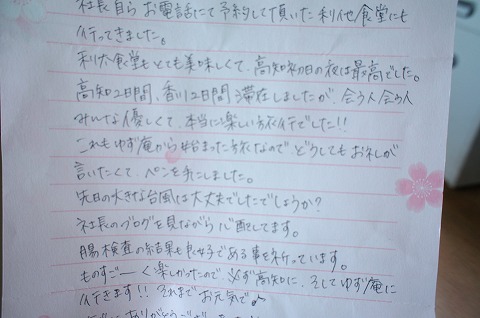 社長自らお電話にて予約して頂いた利他食堂にも
行ってきました。
利他食堂もとても美味しくて、高知初日の夜は最高でした。
高知2日間、香川2日間滞在しましたが、会う人会う人
みんな優しくて、本当に楽しい旅行でした!!
これもゆず庵から始まった旅なので、どうしてもお礼が
言いたくて、ペンを手にしました。
先日の大きな台風は大丈夫でしたでしょうか?
社長のブログを見ながら心配してます。
腸検査の結果も良好である事を祈っています。
ものすごーく楽しかったので必ず高知に、そしてゆず庵に
行きます!!それまでお元気で♪